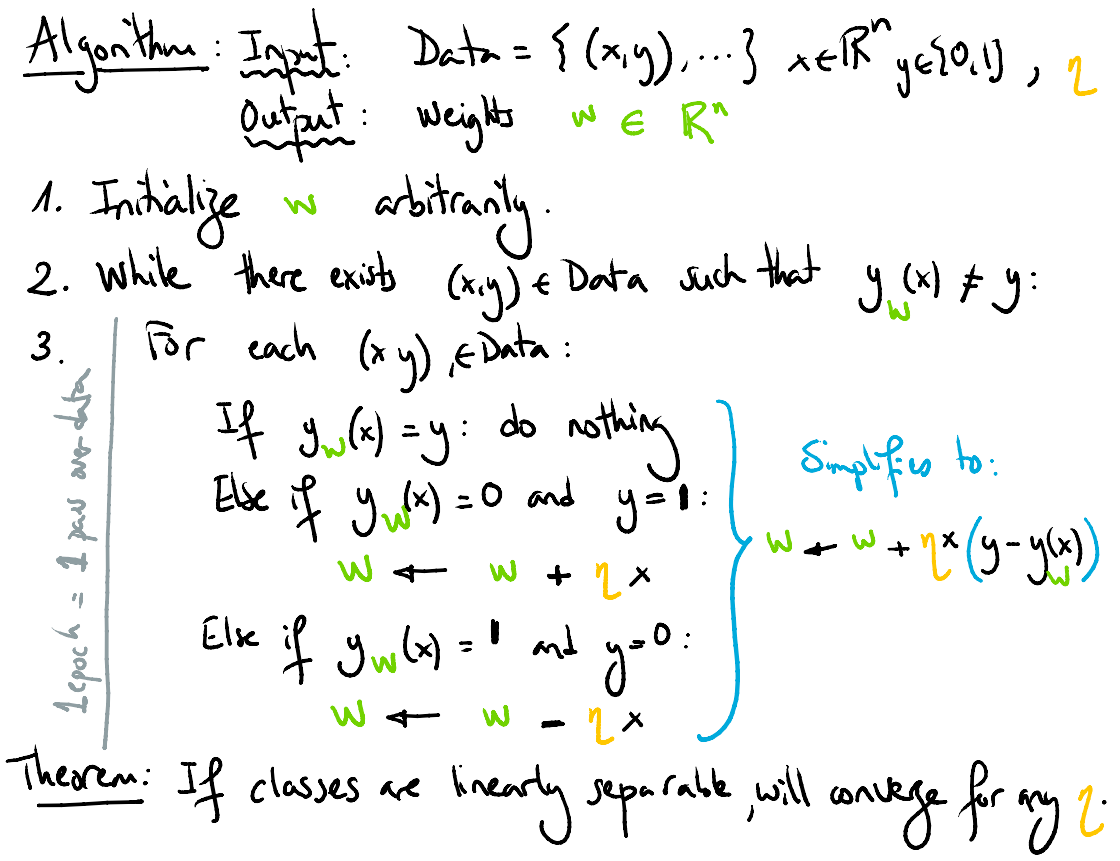 Algorithm: Input: Data = { (x,y), ... } x∈ℝⁿ y∈{0,1}, η
Output: Weights w ∈ ℝⁿ
1. Initialize w arbitrarily.
2. While there exists (x,y) ∈ Data such that y_w(x) ≠ y:
3. For each (x y), ∈ Data:
If y_w(x) = y: do nothing
Else if y_w(x) = 0 and y = 1:
w ← w + η x
Else if y_w(x) = 1 and y = 0:
w ← w - η x
Simplifies to:
w ← w + η x (y - y_w(x))
1 epoch = 1 pass over data
Theorem: If classes are linearly separable, will converge for any η.